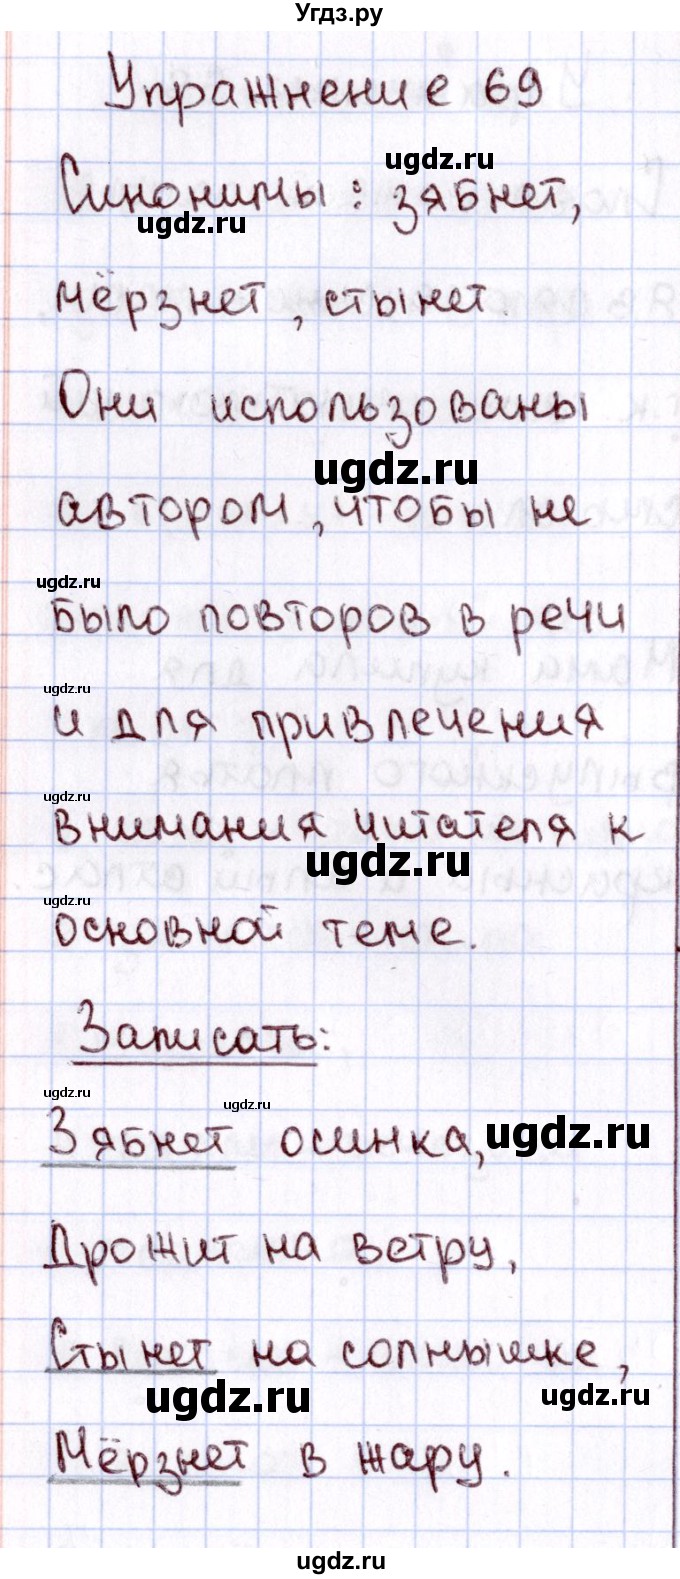 Угдз.ру
Упражнение 69
ugdz.ru
Синонимы: зябнет,
ugdz.ru
мёрзнет, стынет.
Они использованы
ugdz.ru
автором, чтобы не
ugdz.ru
было повторов в речи
ugdz.ru
и для привлечения
ugdz.ru
внимания читателя к
ugdz.ru
ugdz.ru
основной теме.
Записать:
ugdz.ru
ugdz.ru
Зябнет осинка,
ugdz.ru
Дрожит на ветру,
Стынет на солнышке,
ugdz.ru
ugdz.ru
Мёрзнет в жару.
ugdz.ru